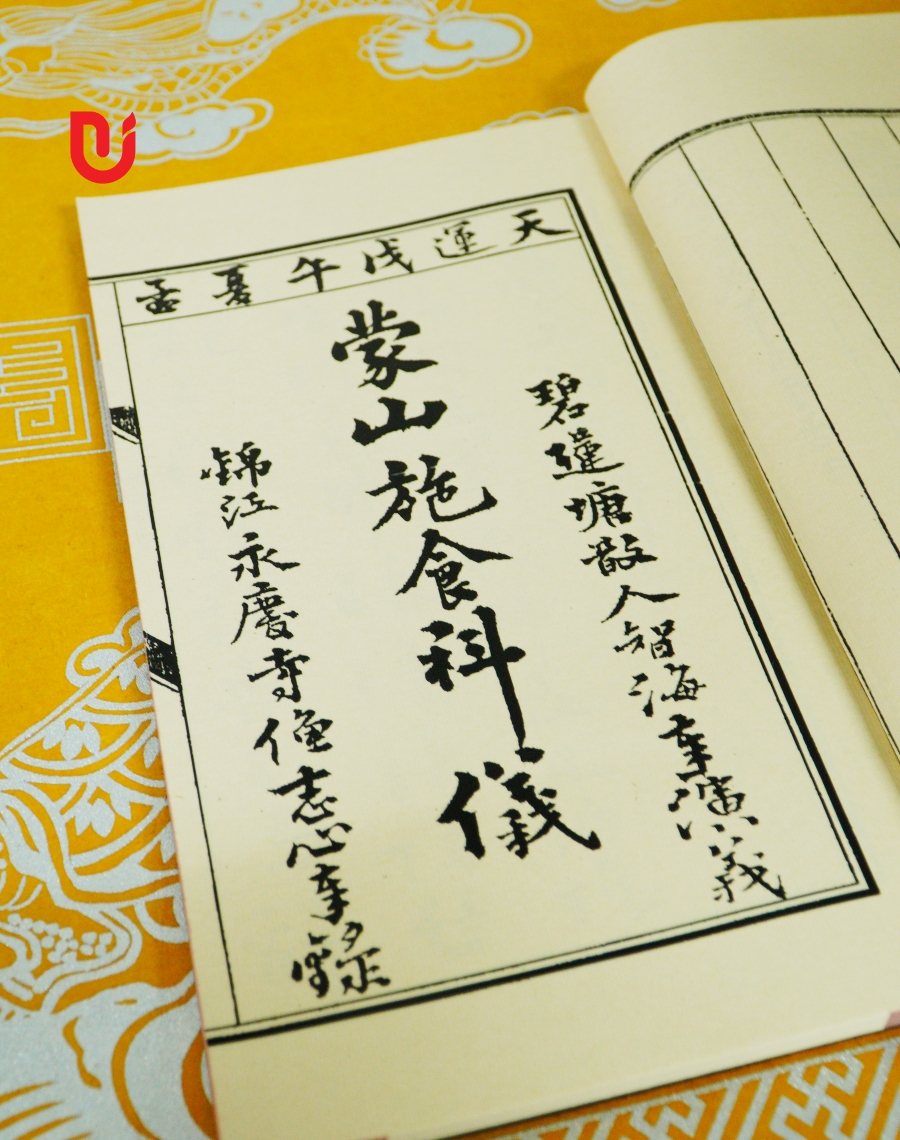 天運戊午夏孟
碧蓮塘散人智海奉演義
蒙山施食科儀
錦江永慶寺僧志心奉錄